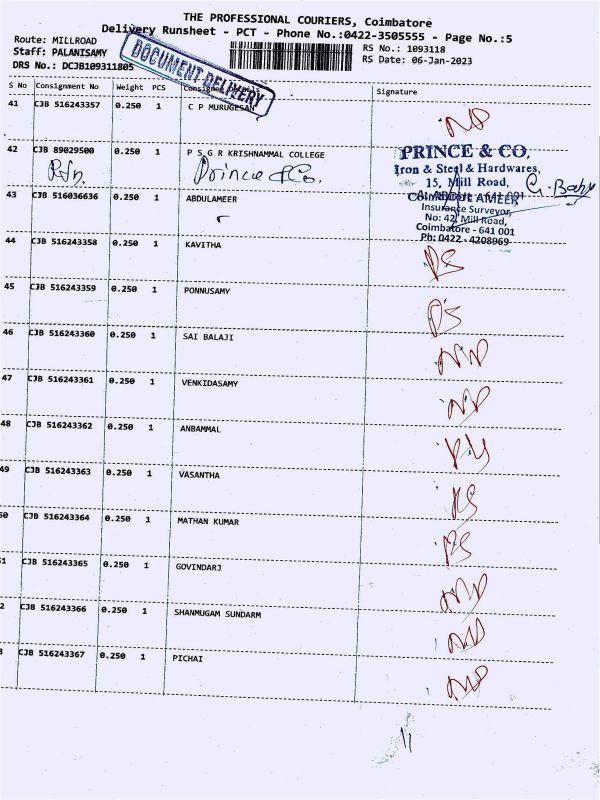 THE PROFESSIONAL COURIERS, Coimbatore
Delivery Runsheet - PCT - Phone No.:0422-3505555 - Page No.:5
Route: MILLROAD
RS No.: 1093118
Staff: PALANISAMY
RS Date: 06-Jan-2023
DRS No.: DCJB109311805
DOCUMENT DELIVERY
S No Consignment No Weight PCS Consignee Details Signature
41 CJB 516243357 0.250 1 C P MURUGESAN
42 CJB 89029500 0.250 1 P S G R KRISHNAMMAL COLLEGE
Prince & Co.
PRINCE & CO,
Iron & Steel & Hardwares,
15, Mill Road,
G. Baby
43 CJB 516036636 0.250 1 ABDULAMEER
Insurance Surveyor,
No: 42, Mill Road,
Coimbatore - 641 001
Ph: 0422 - 4208969
44 CJB 516243358 0.250 1 KAVITHA
45 CJB 516243359 0.250 1 PONNUSAMY
46 CJB 516243360 0.250 1 SAI BALAJI
47 CJB 516243361 0.250 1 VENKIDASAMY
48 CJB 516243362 0.250 1 ANBAMMAL
49 CJB 516243363 0.250 1 VASANTHA
50 CJB 516243364 0.250 1 MATHAN KUMAR
51 CJB 516243365 0.250 1 GOVINDARJ
2 CJB 516243366 0.250 1 SHANMUGAM SUNDARM
3 CJB 516243367 0.250 1 PICHAI